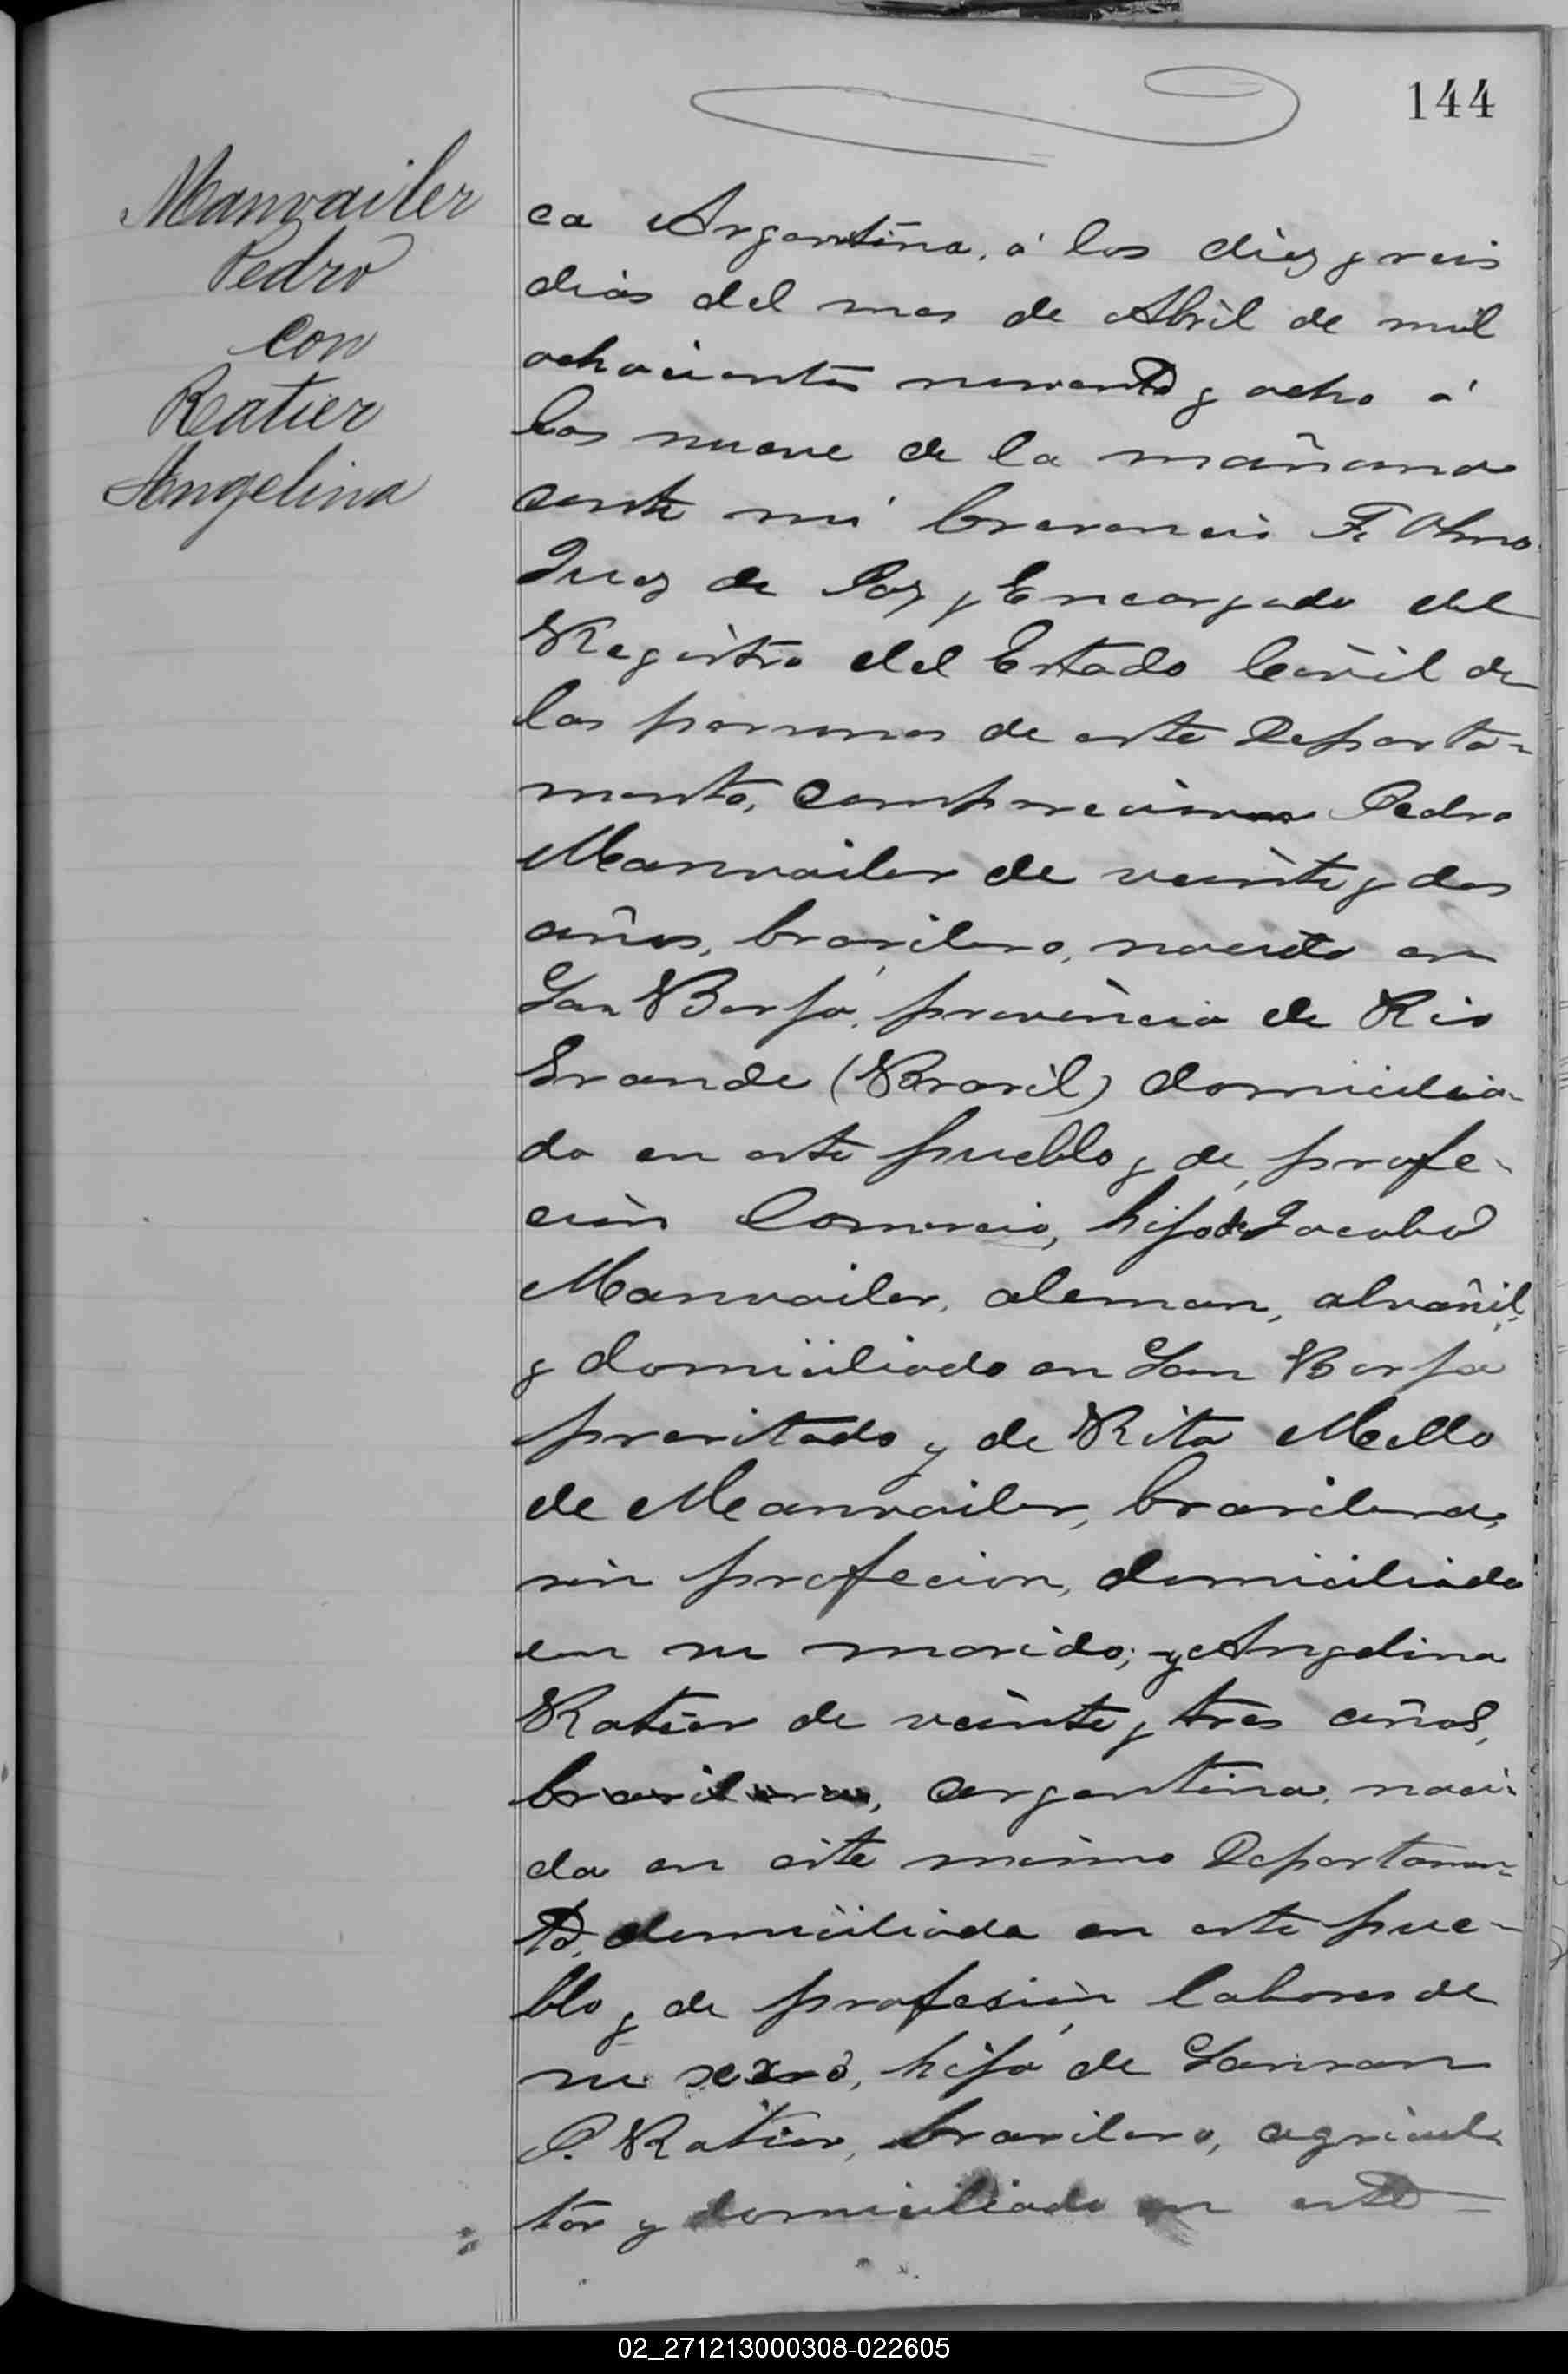 144
Manvailer
Pedro
con
Ratier
Angelina
ca Argentina, á los diez y seis
dias del mes de Abril de mil
ochocientos noventa y ocho á
las nueve de la mañana
ante mi F. Olmo
Juez de Paz y Encargado del
Registro del Estado Civil de
las personas de este Departa-
mento, comparecieron Pedro
Manvailer de veinte y dos
años, brasilero, nacido en
San Borja, provincia de Rio
Grande (Brasil) domicilia-
do en este pueblo y de profe-
cion Comercio, hijo de Jacobo
Manvailer, aleman, alvañil,
y domiciliado en San Borja
presitado y de Rita Mello
de Manvailer, brasilera,
sin profecion, domiciliada
con su marido; y Angelina
Ratier de veinte y tres años,
brasilera, argentina, naci-
da en este mismo Departamen-
to, domiciliada en este pue-
blo y de profesión labores de
su sexo, hija de Sanson
P. Ratier, brasilero, agricul-
tor y domiciliado en este
02_271213000308-022605